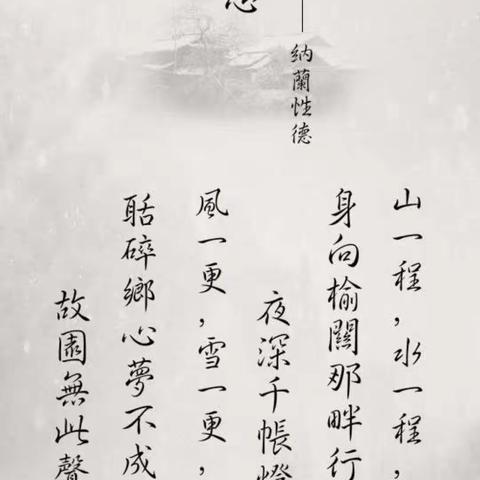 納蘭性德
山一程，水一程，
身向榆關那畔行
夜深千帳燈
風一更，雪一更，
聒碎鄉心夢不成
故園無此聲